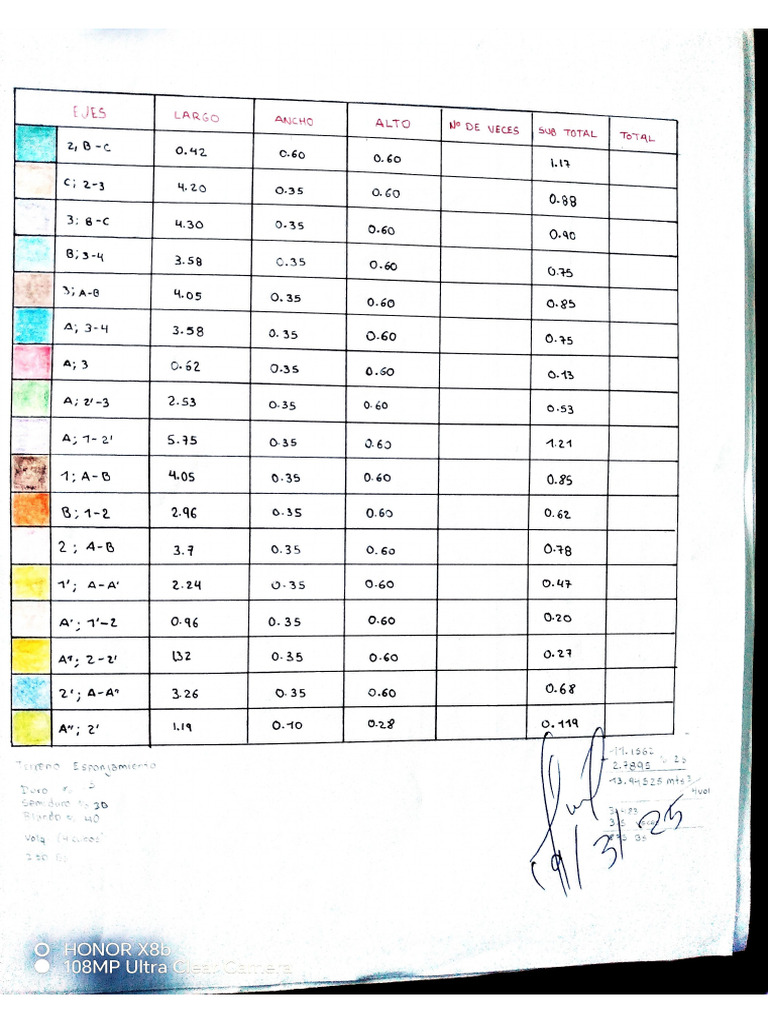 EJES LARGO ANCHO ALTO Nº DE VECES SUB TOTAL TOTAL
2, B-C 0.42 0.60 0.60 1.17
C; 2-3 4.20 0.35 0.60 0.88
3: B-C 4.30 0.35 0.60 0.90
B; 3-4 3.58 0.35 0.60 0.75
3; A-B 4.05 0.35 0.60 0.85
A; 3-4 3.58 0.35 0.60 0.75
A; 3 0.62 0.35 0.60 0.13
A; 2'-3 2.53 0.35 0.60 0.53
A; 1-2' 5.75 0.35 0.60 1.21
1; A-B 4.05 0.35 0.60 0.85
B; 1-2 2.96 0.35 0.60 0.62
2; A-B 3.7 0.35 0.60 0.78
1'; A-A' 2.24 0.35 0.60 0.47
A'; 1'-2 0.96 0.35 0.60 0.20
A"; 2-2' 1.32 0.35 0.60 0.27
2'; A-A" 3.26 0.35 0.60 0.68
A"; 2' 1.19 0.10 0.28 0.119
Terreno Esponjamiento
Duro %
Semiduro % 30
Blando % 40
11.1562
2.7895 % 25
13.94525 mts3/
19/3/25
HONOR X8b
108MP Ultra Clear Camera